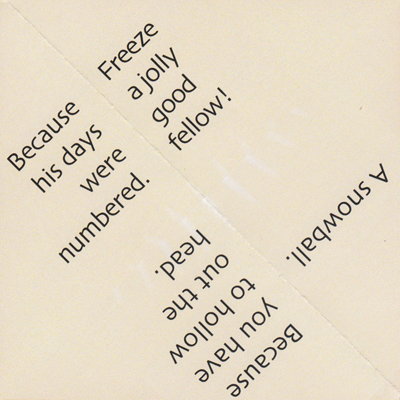 Freeze
a jolly
good
fellow!
Because
his days
were
numbered.
A snowball.
Because
you have
to hollow
out the
head.